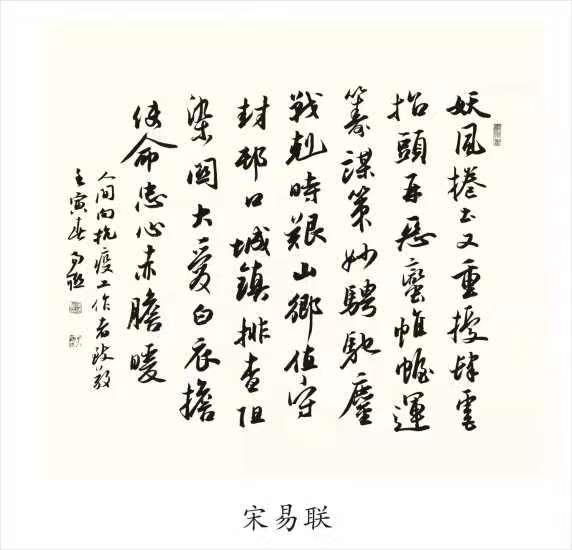 妖風捲土又重擾肆虐
抬頭再惡蠻帷幄運
籌謀策妙騁馳鏖
戰剋時艱山鄉值守
封邨口城鎮排查阻
染關大愛白衣擔
使命忠心赤膽暖
人間向抗疫工作者致敬
壬寅春
宋易联